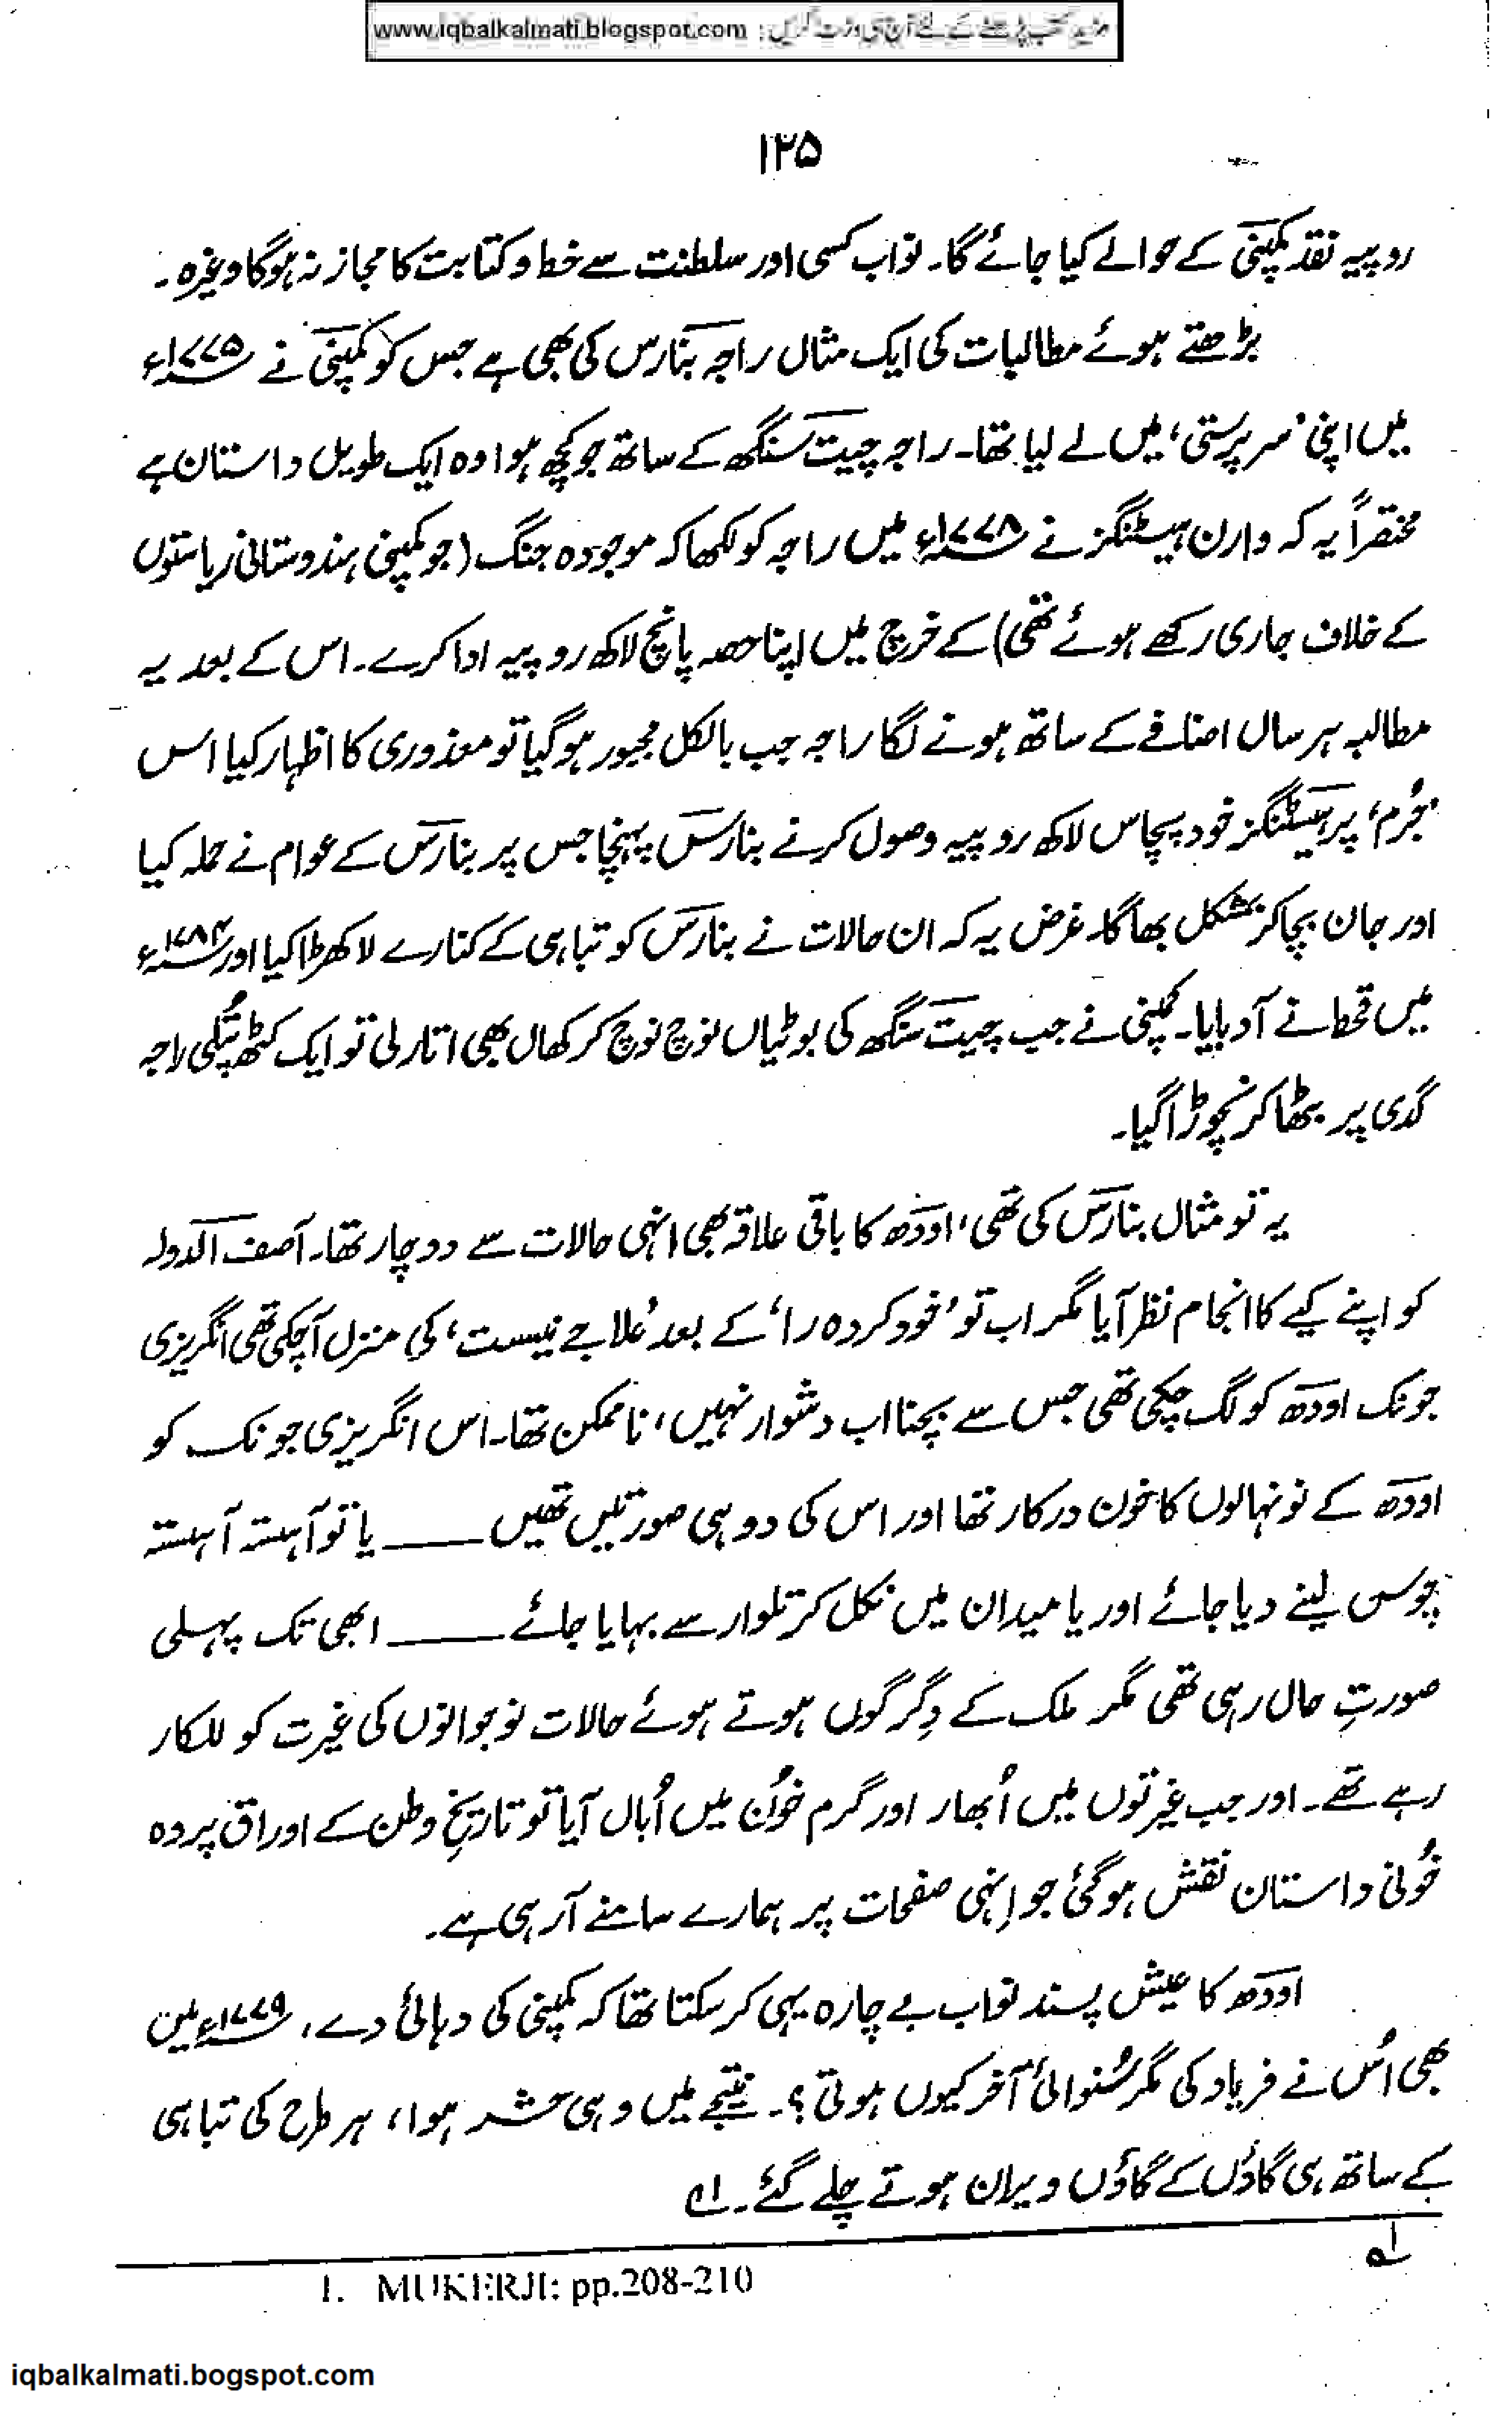 مزید کتب پڑھنے کے لئے آج ہی وزٹ کریں : www.iqbalkalmati.blogspot.com
۱۲۵
روپیہ نقد کمپنی کے حوالے کیا جائے گا۔ نواب کسی اور سلطنت سے خط و کتابت کا مجاز نہ ہوگا وغیرہ۔
بڑھتے ہوئے مطالبات کی ایک مثال راجہ بنارس کی بھی ہے جس کو کمپنی نے ۱۷۷۵ء
میں اپنی ’سرپرستی‘ میں لے لیا تھا۔ راجہ چیت سنگھ کے ساتھ جو کچھ ہوا وہ ایک طویل داستان ہے
مختصراً یہ کہ وارن ہیسٹنگز نے ۱۷۷۸ء میں راجہ کو لکھا کہ موجودہ جنگ (جو کمپنی ہندوستانی ریاستوں
کے خلاف جاری رکھے ہوئے تھی) کے خرچ میں اپنا حصہ پانچ لاکھ روپیہ ادا کرے۔ اس کے بعد یہ
مطالبہ ہر سال اضافے کے ساتھ ہونے لگا راجہ جب بالکل مجبور ہوگیا تو معذوری کا اظہار کیا اس
’جُرم‘ پر ہیسٹنگز خود پچاس لاکھ روپیہ وصول کرنے بنارس پہنچا جس پر بنارس کے عوام نے حملہ کیا
اور جان بچا کر بمشکل بھاگا۔ غرض یہ کہ ان حالات نے بنارس کو تباہی کے کنارے لا کھڑا کیا اور ۱۷۸۴ء
میں قحط نے آ دبایا۔ کمپنی نے جب چیت سنگھ کی بوٹیاں نوچ نوچ کر کھال بھی اتار لی تو ایک کٹھ پُتلی راجہ
گدی پر بٹھا کر نچوڑا گیا۔
یہ تو مثال بنارس کی تھی، اودھ کا باقی علاقہ بھی انہی حالات سے دوچار تھا۔ آصف الدولہ
کو اپنے کیے کا انجام نظر آیا مگر اب تو ’خود کردہ را‘ کے بعد ’علاجے نیست‘ کی منزل آچکی تھی انگریزی
جونک اودھ کو لگ چکی تھی جس سے بچنا اب دشوار نہیں، ناممکن تھا۔ اس انگریزی جونک کو
اودھ کے نونہالوں کا خون درکار تھا اور اس کی دو ہی صورتیں تھیں ——— یا تو آہستہ آہستہ
چوس لینے دیا جائے اور یا میدان میں نکل کر تلوار سے بہایا جائے ——— ابھی تک پہلی
صورتِ حال رہی تھی مگر ملک کے دِگرگوں ہوتے ہوئے حالات نوجوانوں کی غیرت کو للکار
رہے تھے۔ اور جب غیرتوں میں اُبھار اور گرم خوُن میں اُبال آیا تو تاریخِ وطن کے اوراق پر وہ
خُونی داستان نقش ہوگئی جو اِنہی صفحات پر ہمارے سامنے آرہی ہے۔
اودھ کا عیش پسند نواب بے چارہ یہی کر سکتا تھا کہ کمپنی کی دہائی دے، ۱۷۷۹ء میں
بھی اُس نے فریاد کی مگر سُنوائی آخر کیوں ہوتی؟۔ نتیجے میں وہی حشر ہوا، ہر طرح کی تباہی
کے ساتھ ہی گاؤں کے گاؤں ویران ہوتے چلے گئے۔ ۱؎
۱؎
1. MUKERJI: pp.208-210
iqbalkalmati.bogspot.com